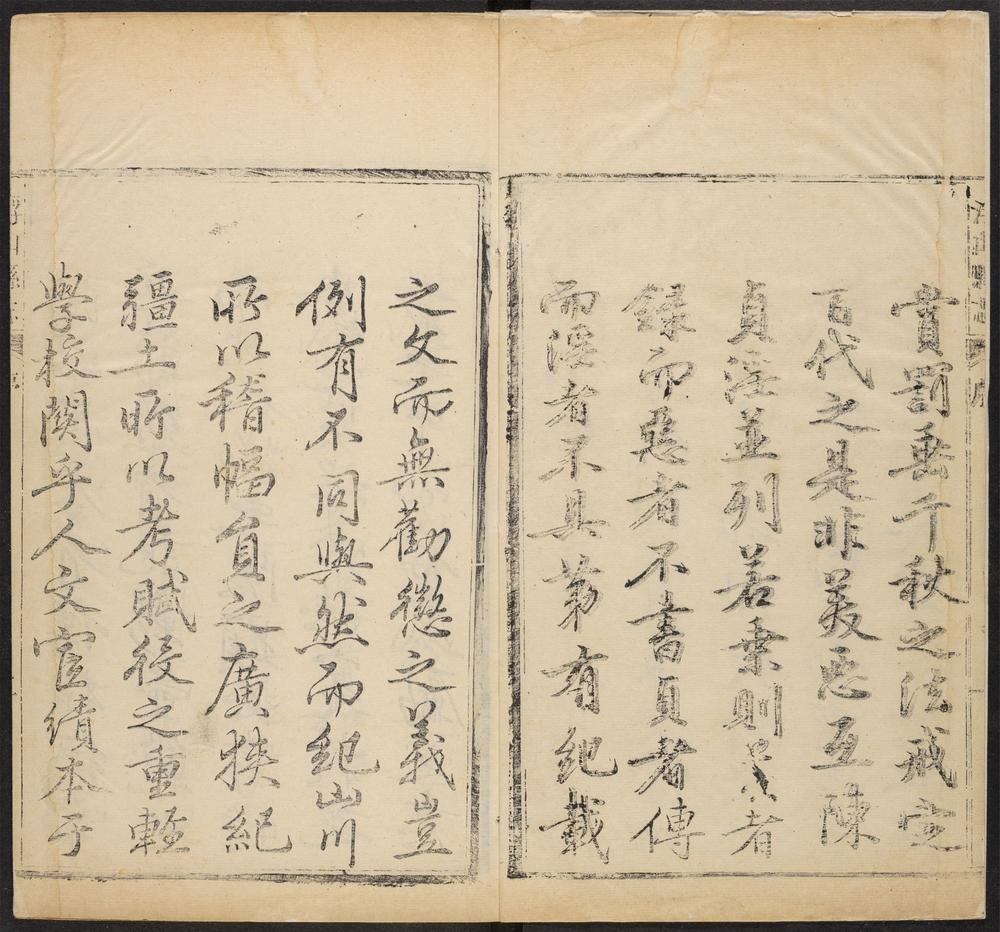 賞罰垂千秋之法戒定
百代之是非美惡互陳
貞淫並列若乗則異者
録而惡者不書貞者傳
而淫者不具第有紀載
之文而無勸懲之義豈
例有不同與然而紀山川
所以稽幅員之廣狹紀
疆土所以考賦役之重輕
學校関乎人文宦績本于